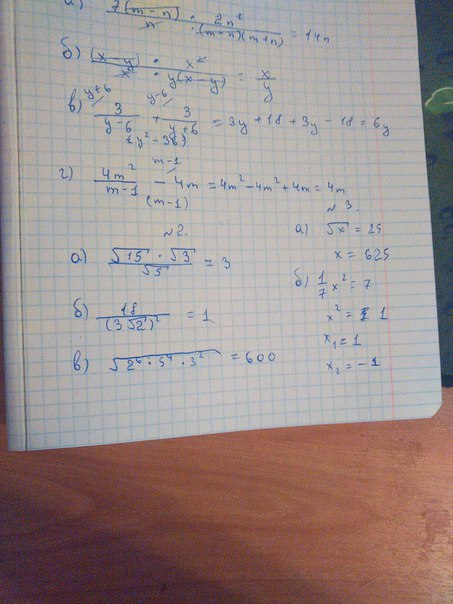 а) 7(m-n)/n · 2n²/(m-n)(m+n) = 14n
б) (x-y)/x · x²/y(x-y) = x/y
в) 3/y-6 + 3/y+6 = 3y+18+3y-18=6y
y+6 y-6
(y²-36)
г) 4m²/m-1 - 4m = 4m²-4m²+4m = 4m
m-1
(m-1)
~2.
а) √15 · √3/√5 = 3
б) 18/(3√2)² = 1
в) √2⁶·5⁴·3² = 600
~3.
а) √x = 25
x = 625
б) 1/7 x² = 7
x² = 1
x₁ = 1
x₂ = -1